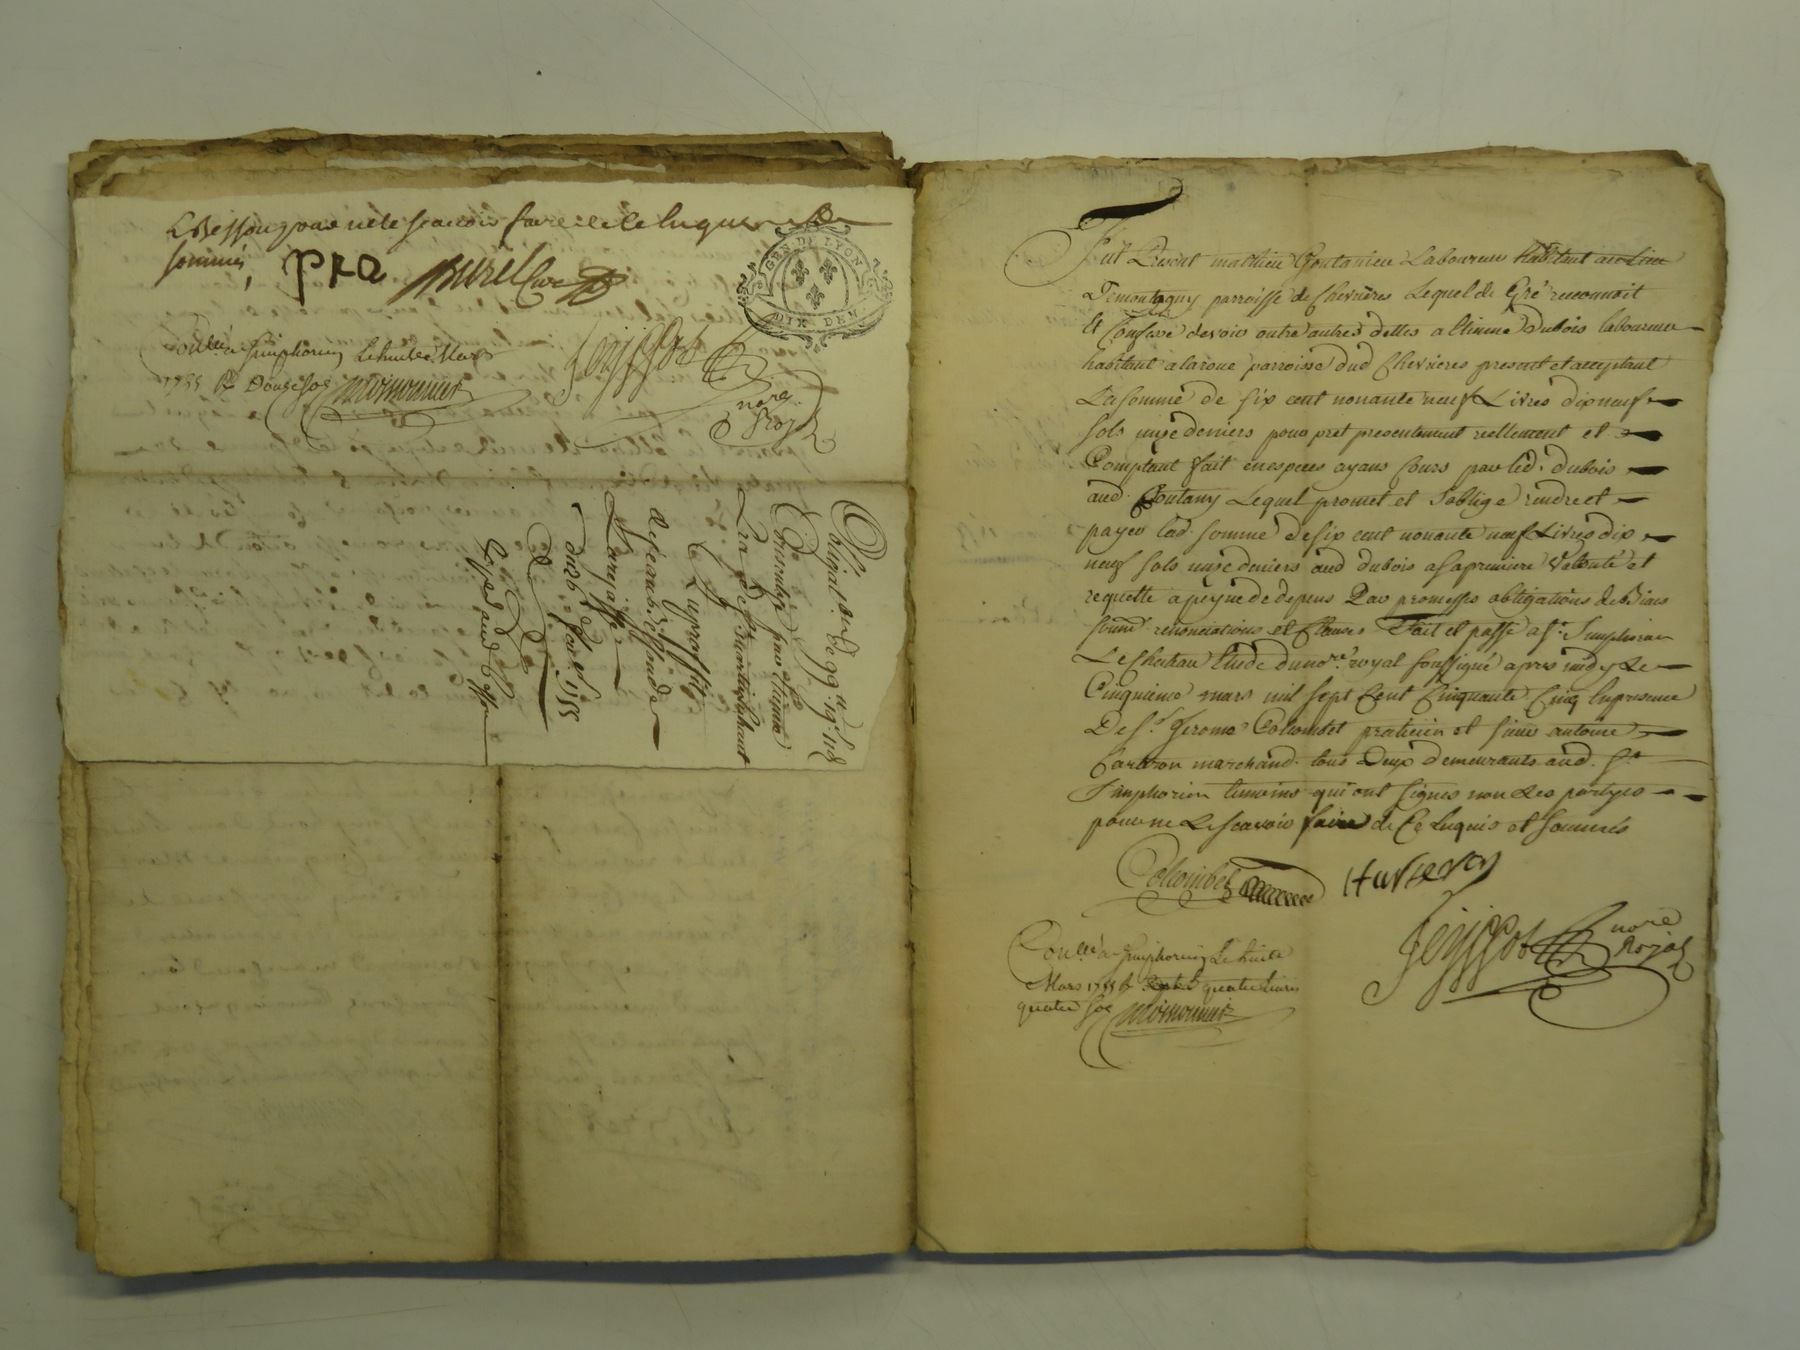 Besson pour ne le scavoir faire de ce enquis et
sommés,
pra
Burel
GEN. DE LYON
DIX DEN.
Con.llé a St Simphorien Le huite Mars
1755 R. Douze sos
Jeyssot
nore.
Royal
Obligat.on de 99 ll 19 s 11 d
Consentie par etienne
Pra de St Martin
Au proffit
de jean besson de
Larajasse
du 26e fevr. 1755
Fut Present mathieu Coutanieu Laboureur habitant au Lieu
De montagny parroisse de Chevrières Lequel de Gré reconnoit
Et Confesse devoir outre autres dettes a Etienne Dubois laboureur
habitant a laroue parroisse dud Chevrieres present et acceptant
La somme de six cent nonante neuf Livres dix neuf
sols unze deniers pour pret presentement reellement et
Comptant fait en especes ayans Cours par led. dubois
aud. Coutany Lequel promet et s'oblige rendre et
payer lad. somme de six cent nonante neuf Livres dix
neuf sols unze deniers aud dubois a sa premiere Volonté et
requette a peyne de depens Par promesses obligations de Biens
soum. renonciations et Clauses Fait et passé a St. Simphorien
Le Chateau Etude du nore. royal soussigné apres midy Le
Cinquieme mars mil sept Cent Cinquante Cinq En presence
De Sr. Gerome Colombet praticien et sieur antoine
marchand tous Deux demeurants aud. St.
Simphorien temoins qui ont signés non Les partyes
pour ne Le scavoir faire de Ce Enquis et sommés
Colombet
Jeyssot
nore
Royal
Con.llé a St Simphorien Le huite
Mars 1755 R. quatre livres
quatre sos